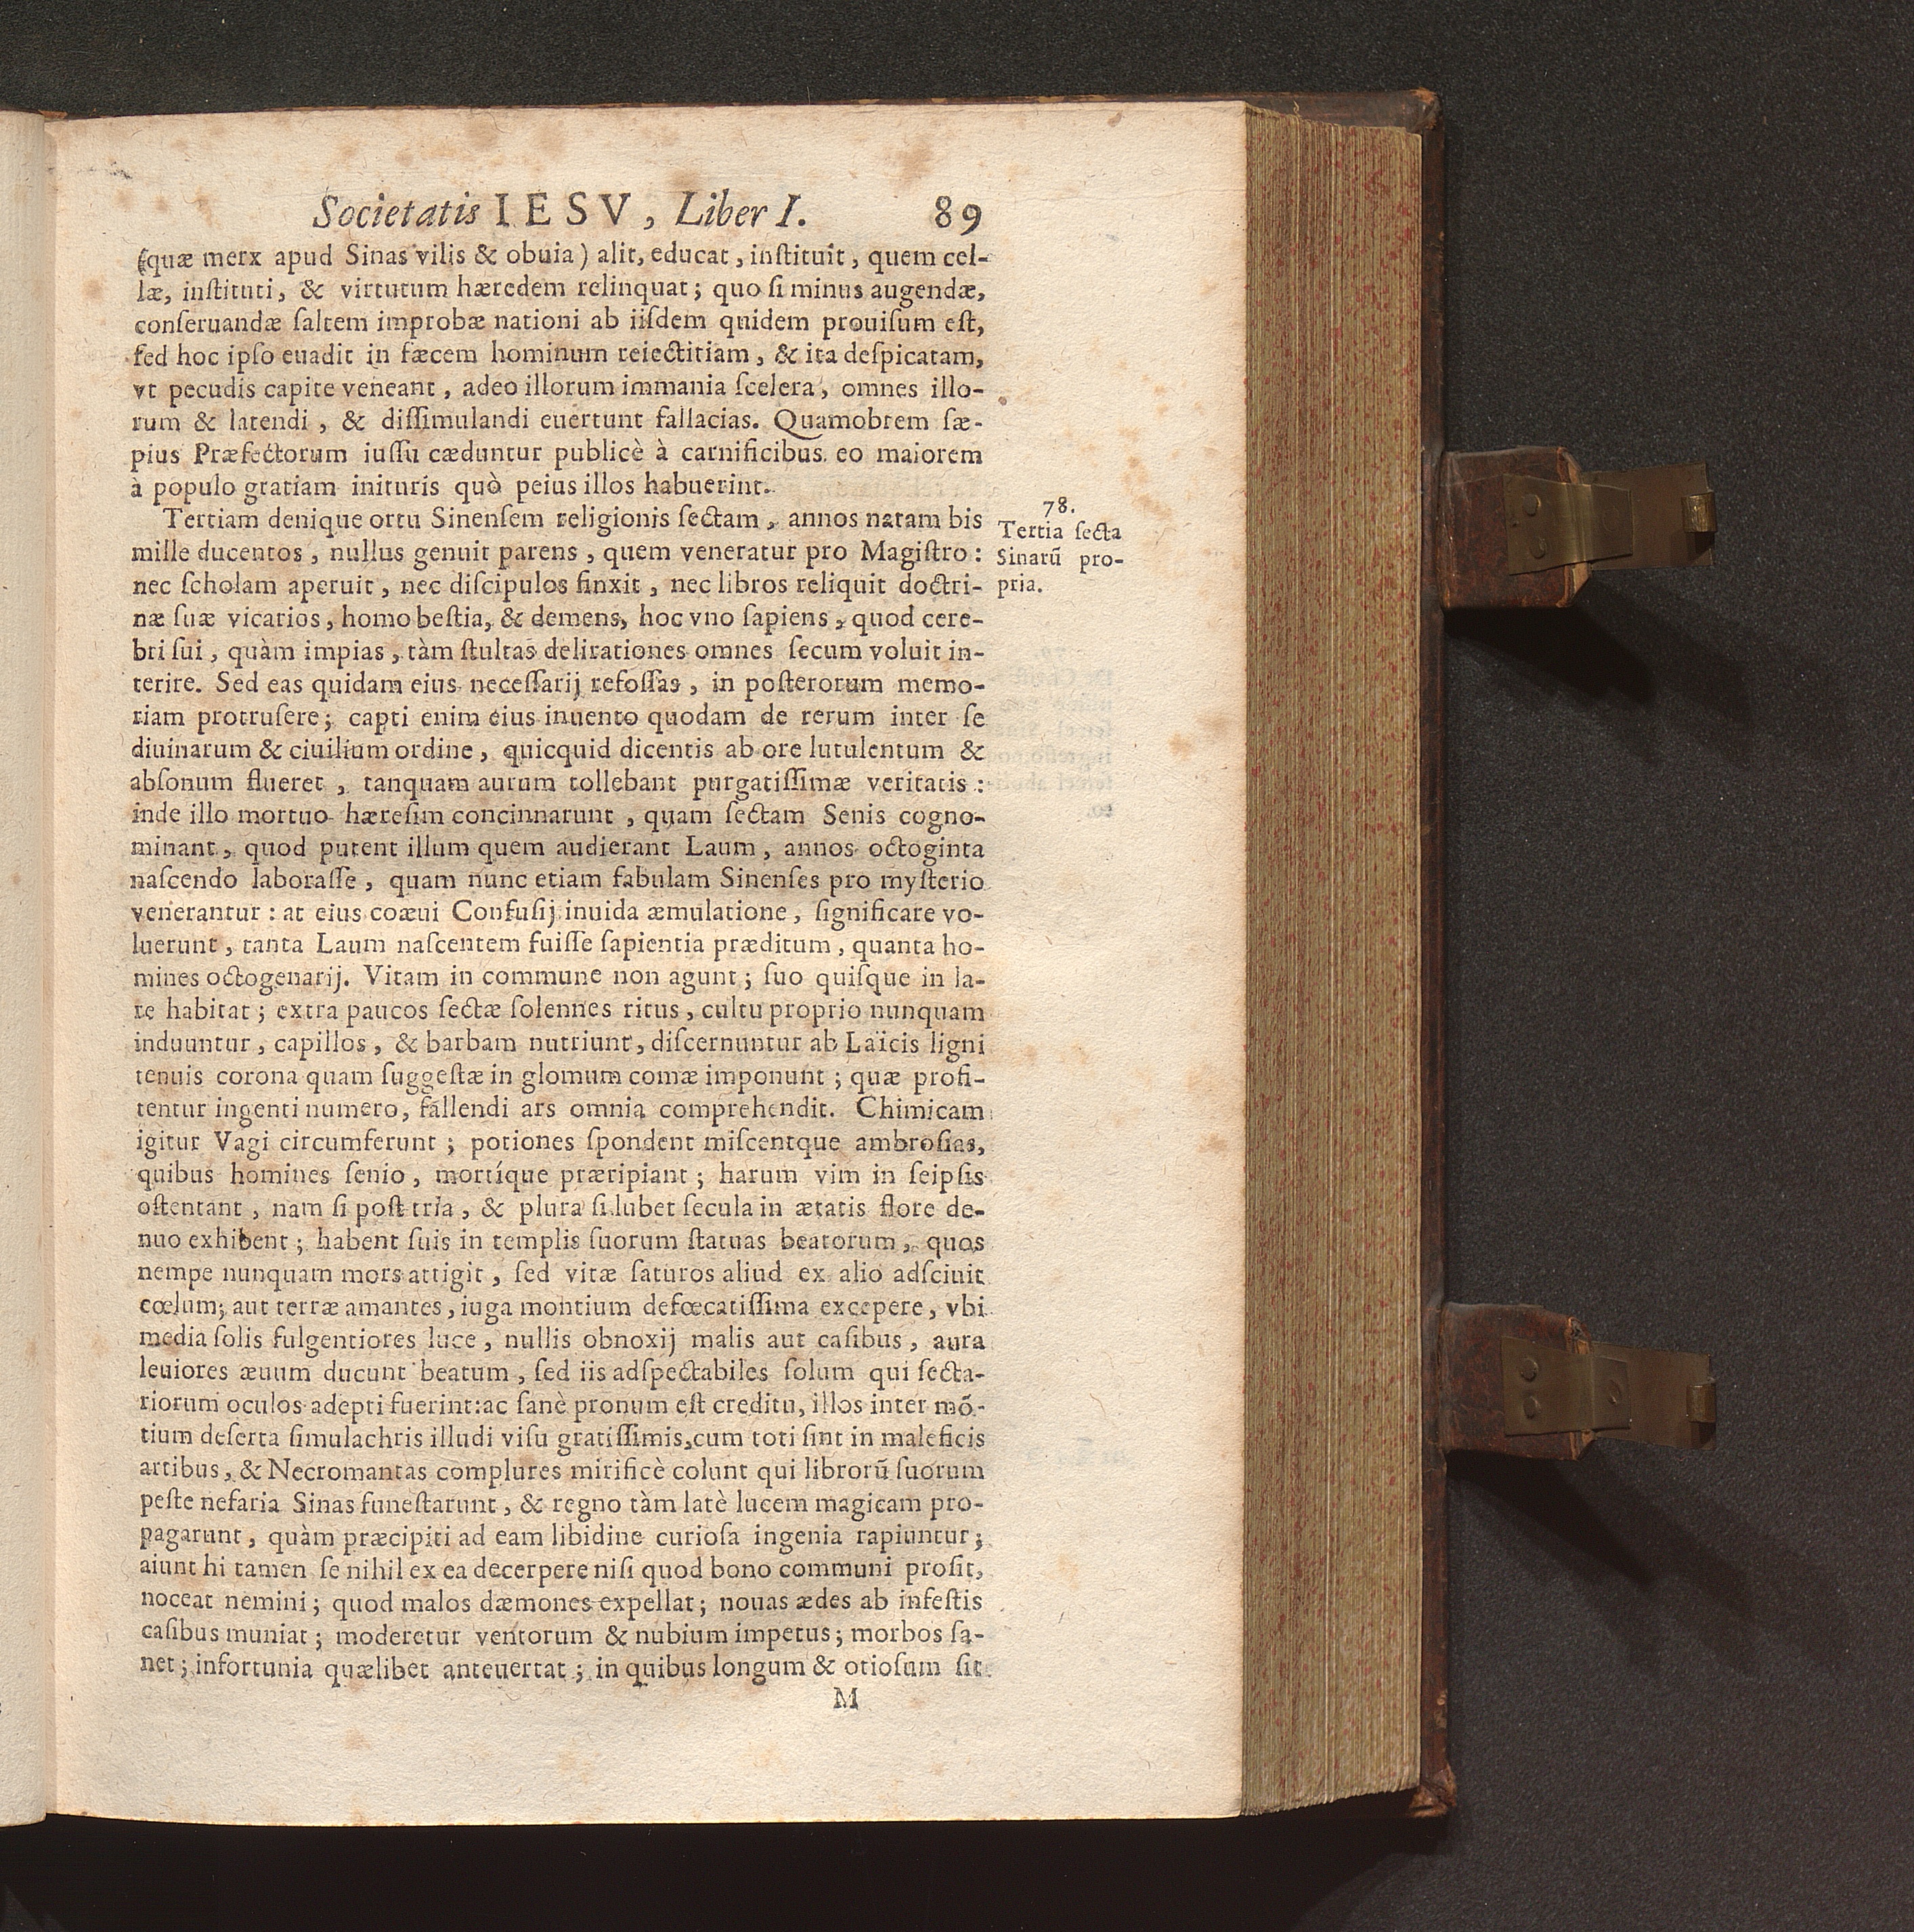 Societatis IESV, Liber I. 89
(quæ merx apud Sinas vilis & obuia) alit, educat, inſtituit, quem cel-
læ, inſtituti, & virtutum hæredem relinquat; quo ſi minus augendæ,
conſeruandæ ſaltem improbæ nationi ab iiſdem quidem prouiſum eſt,
ſed hoc ipſo euadit in fæcem hominum reiectitiam, & ita deſpicatam,
vt pecudis capite veneant, adeo illorum immania ſcelera, omnes illo-
rum & latendi, & diſſimulandi euertunt fallacias. Quamobrem ſæ-
pius Præfectorum iuſſu cæduntur publicè à carnificibus eo maiorem
à populo gratiam inituris quò peius illos habuerint.
Tertiam denique ortu Sinenſem religionis ſectam, annos natam bis
mille ducentos, nullus genuit parens, quem veneratur pro Magiſtro:
nec ſcholam aperuit, nec diſcipulos finxit, nec libros reliquit doctri-
næ ſuæ vicarios, homo beſtia, & demens, hoc vno ſapiens, quod cere-
bri ſui, quàm impias, tàm ſtultas delirationes omnes ſecum voluit in-
terire. Sed eas quidam eius neceſſarij refoſſas, in poſterorum memo-
riam protruſere; capti enim eius inuento quodam de rerum inter ſe
diuinarum & ciuilium ordine, quicquid dicentis ab ore lutulentum &
abſonum flueret, tanquam aurum tollebant purgatiſſimæ veritatis:
inde illo mortuo hæreſim concinnarunt, quam ſectam Senis cogno-
minant, quod putent illum quem audierant Laum, annos octoginta
naſcendo laboraſſe, quam nunc etiam fabulam Sinenſes pro myſterio
venerantur: at eius coæui Confuſij inuida æmulatione, ſignificare vo-
luerunt, tanta Laum naſcentem fuiſſe ſapientia præditum, quanta ho-
mines octogenarij. Vitam in commune non agunt; ſuo quiſque in la-
re habitat; extra paucos ſectæ ſolennes ritus, cultu proprio nunquam
induuntur, capillos, & barbam nutriunt, diſcernuntur ab Laïcis ligni
tenuis corona quam ſuggeſtæ in glomum comæ imponunt; quæ profi-
tentur ingenti numero, fallendi ars omnia comprehendit. Chimicam
igitur Vagi circumferunt; potiones ſpondent miſcentque ambroſias,
quibus homines ſenio, mortíque præripiant; harum vim in ſeipſis
oſtentant, nam ſi poſt tria, & plura ſi lubet ſecula in ætatis flore de-
nuo exhibent; habent ſuis in templis ſuorum ſtatuas beatorum, quos
nempe nunquam mors attigit, ſed vitæ ſaturos aliud ex alio adſciuit
cœlum; aut terræ amantes, iuga montium defœcatiſſima excepere, vbi
media ſolis fulgentiores luce, nullis obnoxij malis aut caſibus, aura
leuiores æuum ducunt beatum, ſed iis adſpectabiles ſolum qui ſecta-
riorum oculos adepti fuerint: ac ſanè pronum eſt creditu, illos inter mõ-
tium deſerta ſimulachris illudi viſu gratiſſimis, cum toti ſint in maleficis
artibus, & Necromantas complures mirificè colunt qui librorũ ſuorum
peſte nefaria Sinas funeſtarunt, & regno tàm latè lucem magicam pro-
pagarunt, quàm præcipiti ad eam libidine curioſa ingenia rapiuntur;
aiunt hi tamen ſe nihil ex ea decerpere niſi quod bono communi proſit,
noceat nemini; quod malos dæmones expellat; nouas ædes ab infeſtis
caſibus muniat; moderetur ventorum & nubium impetus; morbos ſa-
net; infortunia quælibet anteuertat; in quibus longum & otioſum ſit
M
78.
Tertia ſecta
Sinarũ pro-
pria.